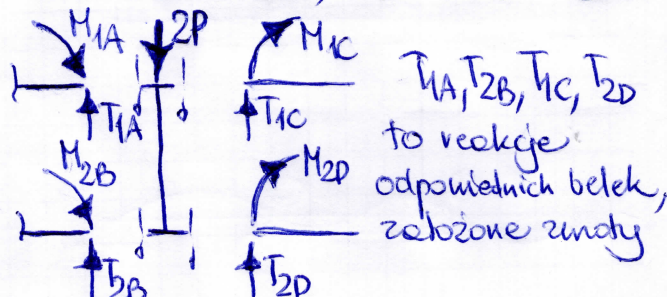 M1A 2P M1C
T1A T1C
M2B M2D
T2B T2D
T1A, T2B, T1C, T2D
to reakcje
odpowiednich belek,
założone zwroty